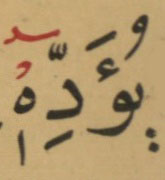 يُؤَدِّهِ